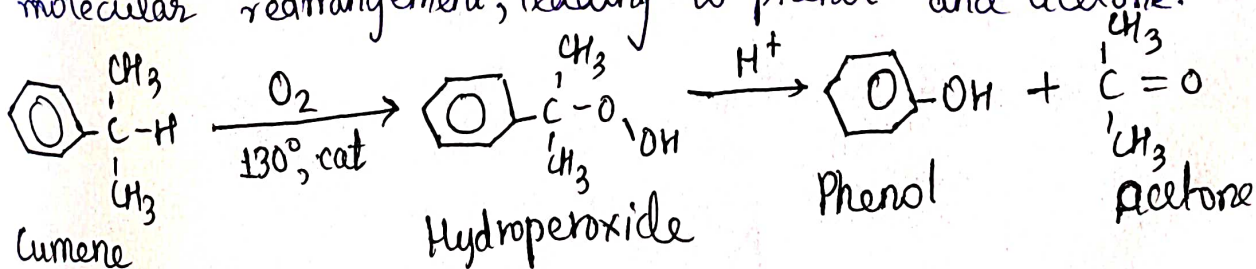 molecular rearrangement, leading to phenol and acetone.
CH3 CH3 CH3
C-H O2 130°, cat C-O-OH H+ -OH + C=O
CH3 CH3 CH3
Cumene Hydroperoxide Phenol Acetone